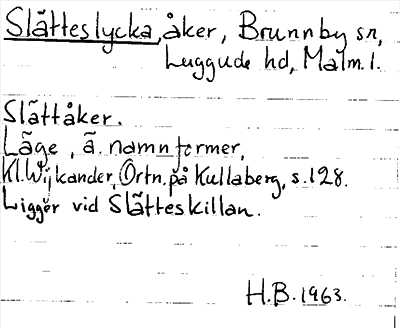 Slätteslycka, åker, Brunnby sn,
Luggude hd, Malm. l.
Slättåker.
Läge, ä. namnformer,
Kl. Wijkander, Ortn. på Kullaberg, s. 128.
Ligger vid Slätteskillan.
H.B. 1963.